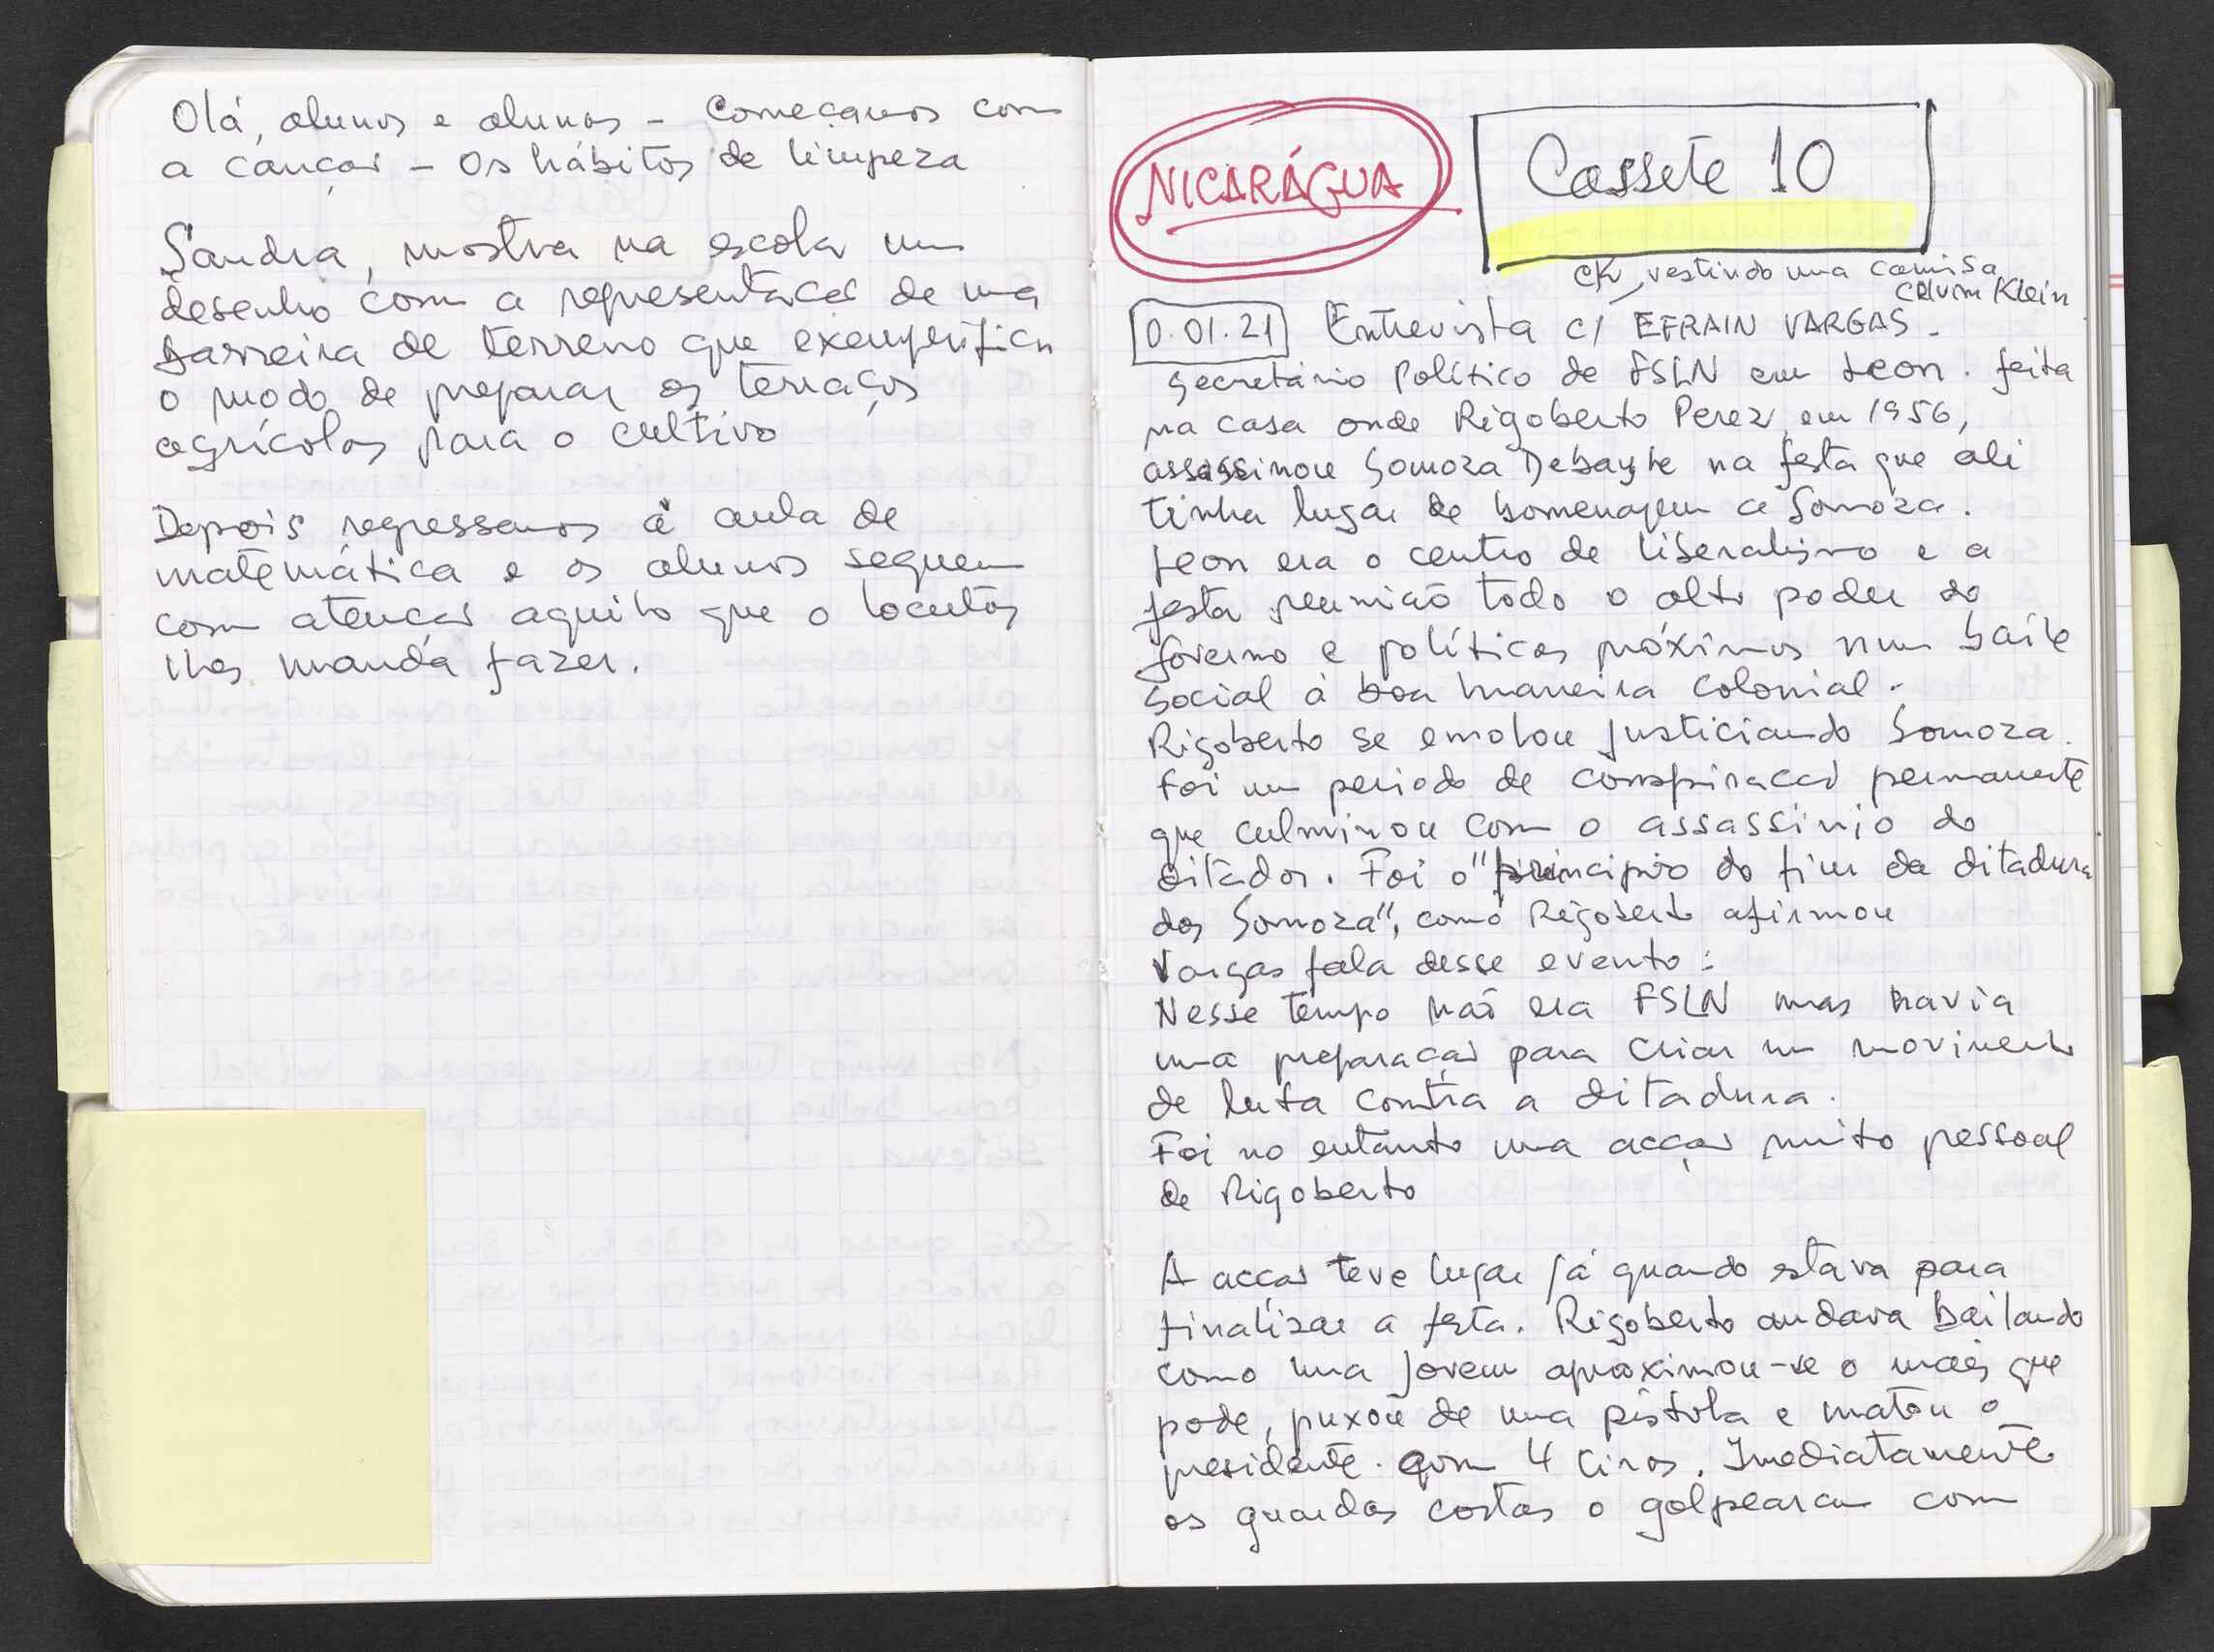 Olá, alunos e alunas - Começamos com
a canção - Os hábitos de limpeza
Sandra, mostra na escola um
desenho com a representação de uma
barreira de terreno que exemplifica
o modo de preparar os terraços
agrícolas para o cultivo
Depois regressamos à aula de
matemática e os alunos seguem
com atenção aquilo que o locutor
lhes manda fazer.
NICARÁGUA
Cassete 10
CK, vestindo uma camisa
Calvim Klein
0.01.21 Entrevista c/ EFRAIN VARGAS -
Secretário Político de FSLN em Leon. feita
na casa onde Rigoberto Perez, em 1956,
assassinou Somoza Debayle na festa que ali
tinha lugar de homenagem a Somoza.
Leon era o centro de liberalismo e a
festa reunião todo o alto poder do
governo e políticos próximos num baile
social à boa maneira colonial.
Rigoberto se emolou justiciando Somoza.
Foi um periodo de conspiração permanente
que culminou com o assassinio do
ditador. Foi o "principio do fim da ditadura
dos Somoza", como Rigoberto afirmou
Vargas fala desse evento:
Nesse tempo não era FSLN mas havia
uma preparação para criar um movimento
de luta contra a ditadura.
Foi no entanto uma acção muito pessoal
de Rigoberto
A acção teve lugar já quando estava para
finalizar a festa. Rigoberto andava bailando
como uma jovem aproximou-se o mais que
pode, puxou de uma pistola e matou o
presidente com 4 tiros. Imediatamente
os guardas costas o golpearam com